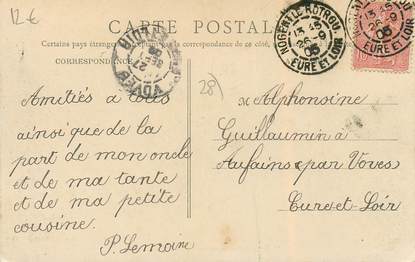 12 €
CARTE POSTALE
Certains pays étrangers la correspondance de ce côté
CORRESPONDANCE
NOGENT-LE-ROTROU
13 45
26-9
05
EURE ET LOIR
NOGENT
13 45
26-9
05
EURE ET LOIR
VOVES
27
EURE-ET-LOIR
28)
Amitiés à tous
ainsi que de la
part de mon oncle
et de ma tante
et de ma petite
cousine.
P. Lemoine
M Alphonsine
Guillaumin à
Aufains par Voves
Eure-et-Loir